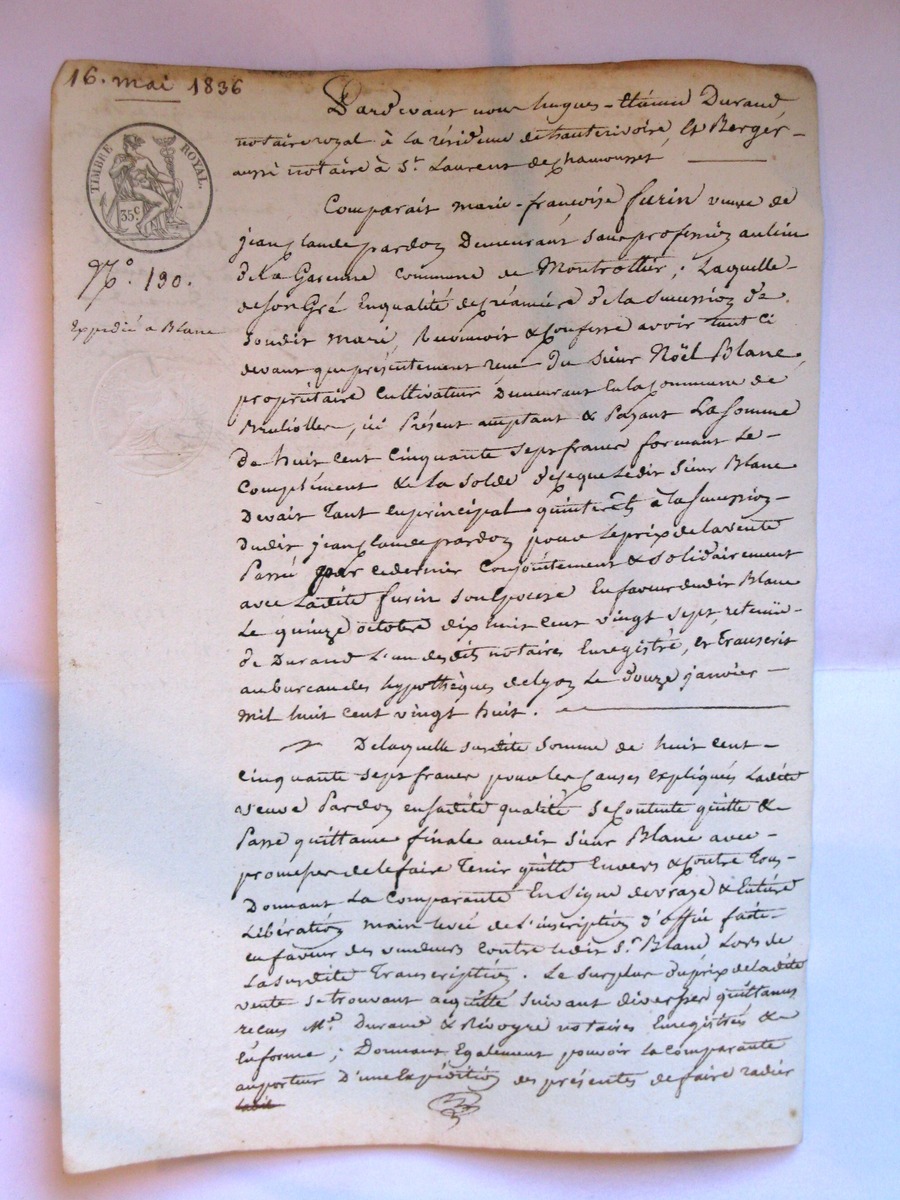 16. mai 1836
TIMBRE ROYAL.
35c
N.° 190.
Expédié a Blanc
Pardevant nous hugues-Etienne Durand
notaire royal à la résidence de hauterivoire, Et Berger-
aussi notaire à St. Laurent de chamousset,
Comparait marie-françoise furin veuve de
jean Claude pardon Demeurant sans profession au lieu
de La Garenne Commune de Montrottier; Laquelle-
de son Gré En qualité de de la succession de
Soudit mari, Reconnoit & Confesse avoir tant ci
devant que présentement reçu Du Sieur Noël Blanc,
propriétaire Cultivateur Demeurant En la Commune de
Brullolles, ici Présent acceptant & Payant La Somme
De huit Cent Cinquante Sept francs formant Le-
Complément & La Solde de ce que Ledit Sieur Blanc
Devait Tant en principal qu'interêts à la succession-
Dudit jean Claude pardon pour Le prix de la vente
Passé par ce dernier Conjointement & Solidairement
avec Ladite furin Son Epouse En faveur dudit Blanc
Le quinze octobre dix huit cent vingt sept, retenue-
De Durand L'un desdits notaires Enregistré, et Transcrit
au bureau des hypothèques de Lyon Le Douze janvier-
mil huit cent vingt huit.
De laquelle susdite Somme de huit cent-
cinquante Sept francs pour les Causes expliqués Ladite
veuve Pardon en sadite qualité Se Contente quitte &
Passe quittance finale audit Sieur Blanc avec-
promesse de le faire Tenir quitte Envers & Contre Tous-
Donnant La Comparante En Signe de vraye & Entiere
Libération main levée de L'inscription d'office faite-
en faveur des vendeurs Contre Ledit Sr. Blanc Lors de
La susdite Transcription. Le Surplus du prix de ladite
vente Se trouvant acquitté Suivant diverses quittances
reçues Me. Durand & Rivoyre notaires Enregistrés &
En forme; Donnant Egalement pouvoir la Comparante
au porteur D'une Expédition des présentes de faire radier